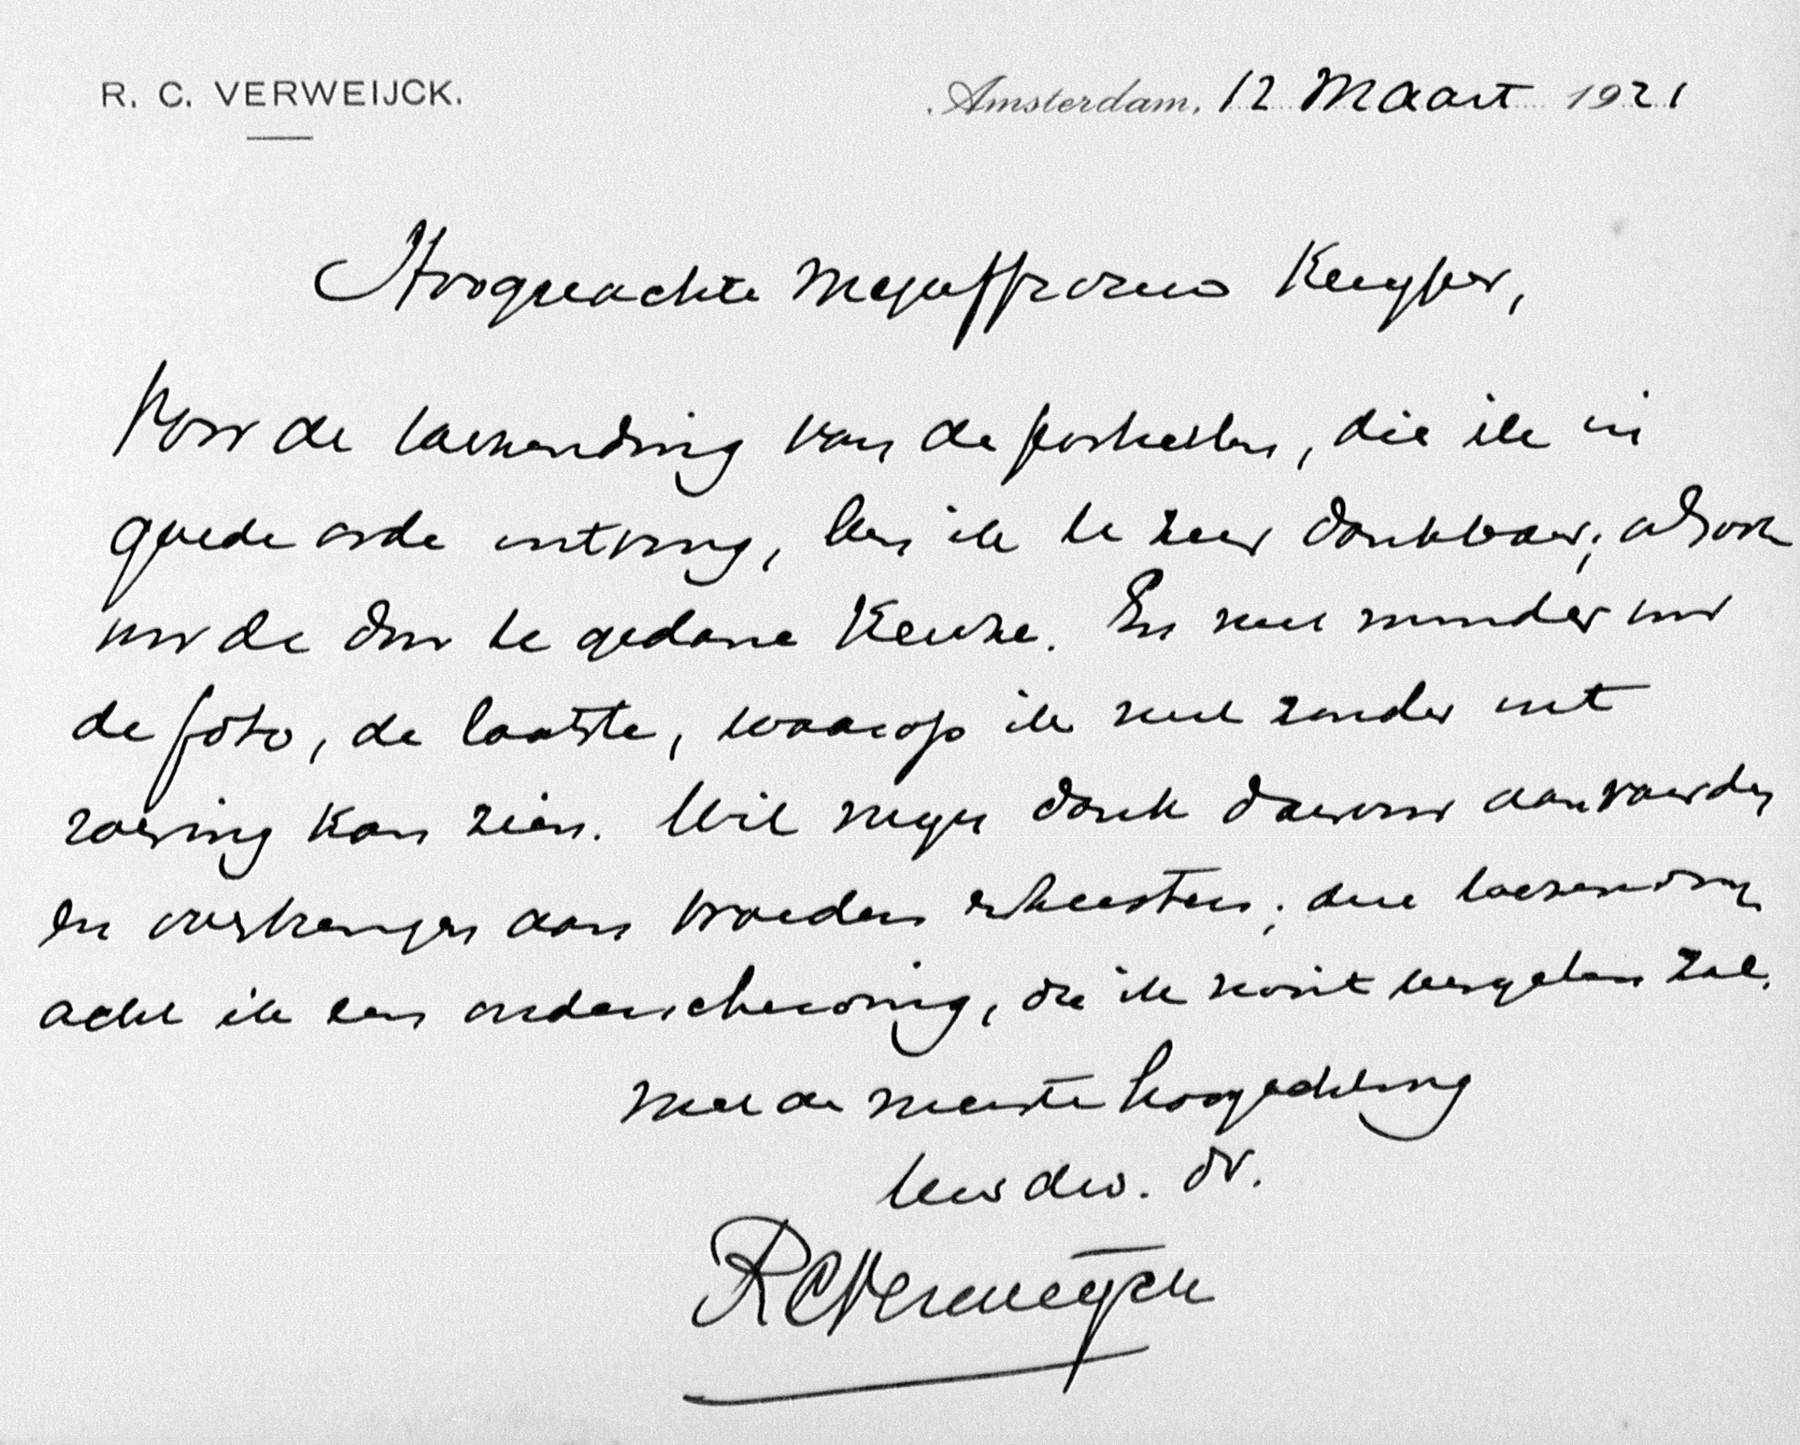 R. C. VERWEIJCK.
Amsterdam, 12 Maart 1921
Hooggeachte Mejuffrouw Kuyper,
Voor de toezending van de portretten, die ik in
goede orde ontving, ben ik U zeer dankbaar; alsook
voor de door U gedane keuze. En niet minder voor
de foto, de laatste, waarop ik niet zonder ont
roering kan zien. Wil mijn dank daarvoor aanvaarden
en overbrengen aan broeders en zusters; deze toezending
acht ik een onderscheiding, die ik nooit vergeten zal.
Met de meeste hoogachting
Uw dw. dr.
RCVerweijck